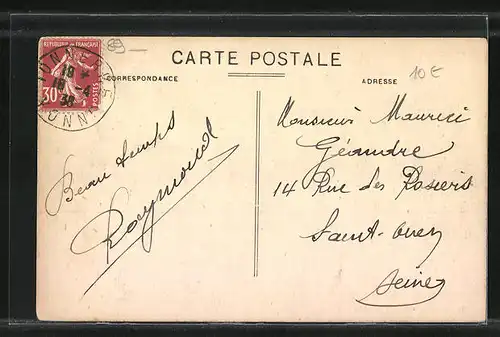 RÉPUBLIQUE FRANÇAISE
30
POSTES
TONNERRE
YONNE
19
18 -4
38
89
CARTE POSTALE
CORRESPONDANCE
ADRESSE
10 €
Beau temps
Raymond
Monsieur Maurice
Géandre
14 Rue des Rosiers
Saint-Ouen
Seine